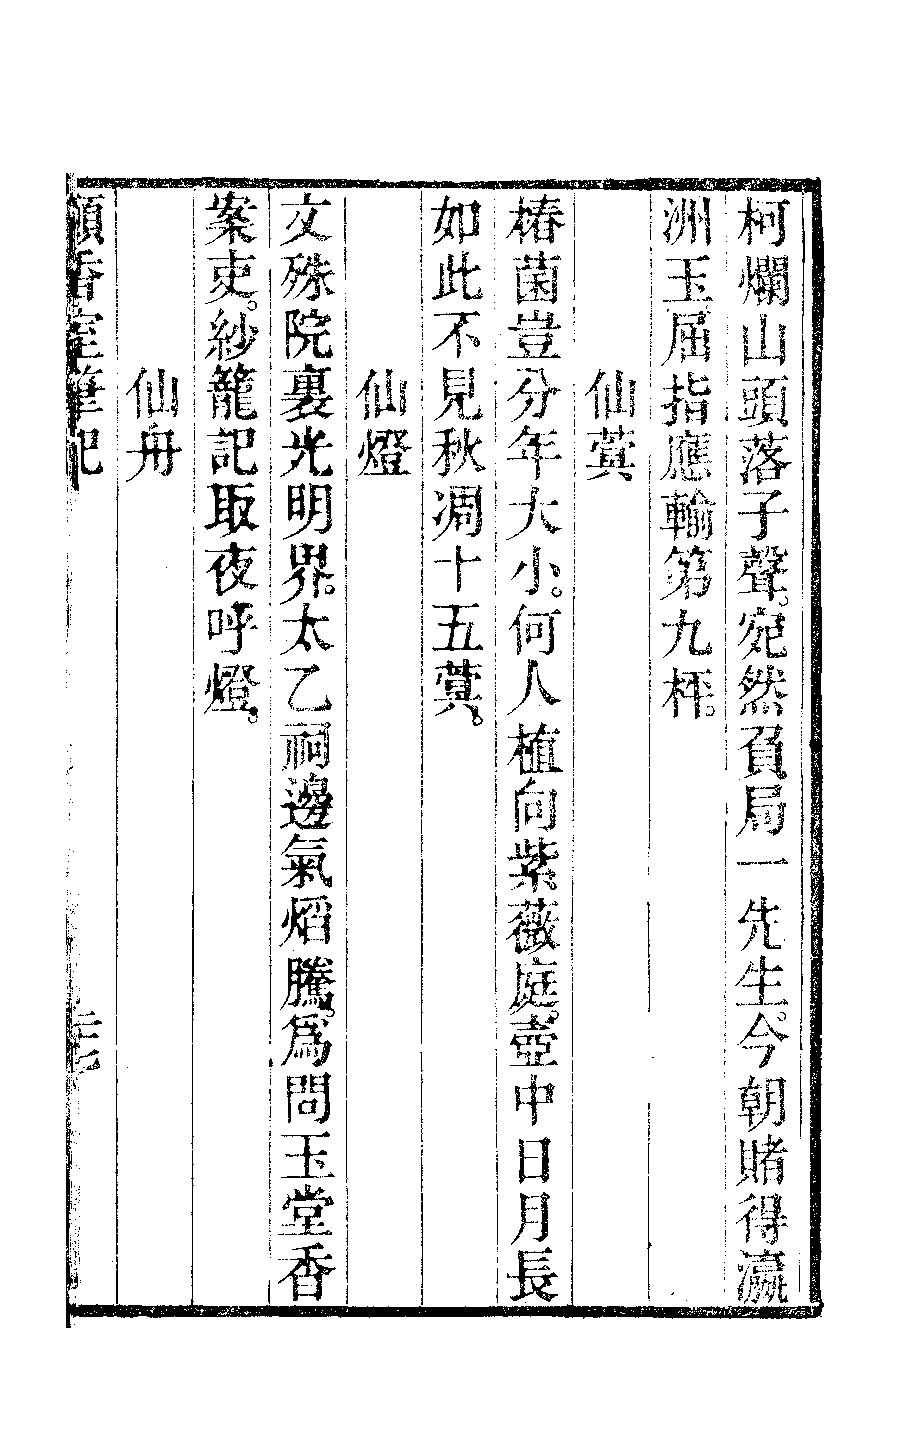 柯爛山頭落子聲。宛然負局一先生。今朝賭得瀛
洲玉。屈指應輸第九枰。
仙蓂
椿菌豈分年大小。何人植向紫薇庭。壺中日月長
如此。不見秋凋十五蓂。
仙燈
文殊院裏光明界。太乙祠邊氣熖騰。爲問玉堂香
案吏。紗籠記取夜呼燈。
仙舟
香室筆記